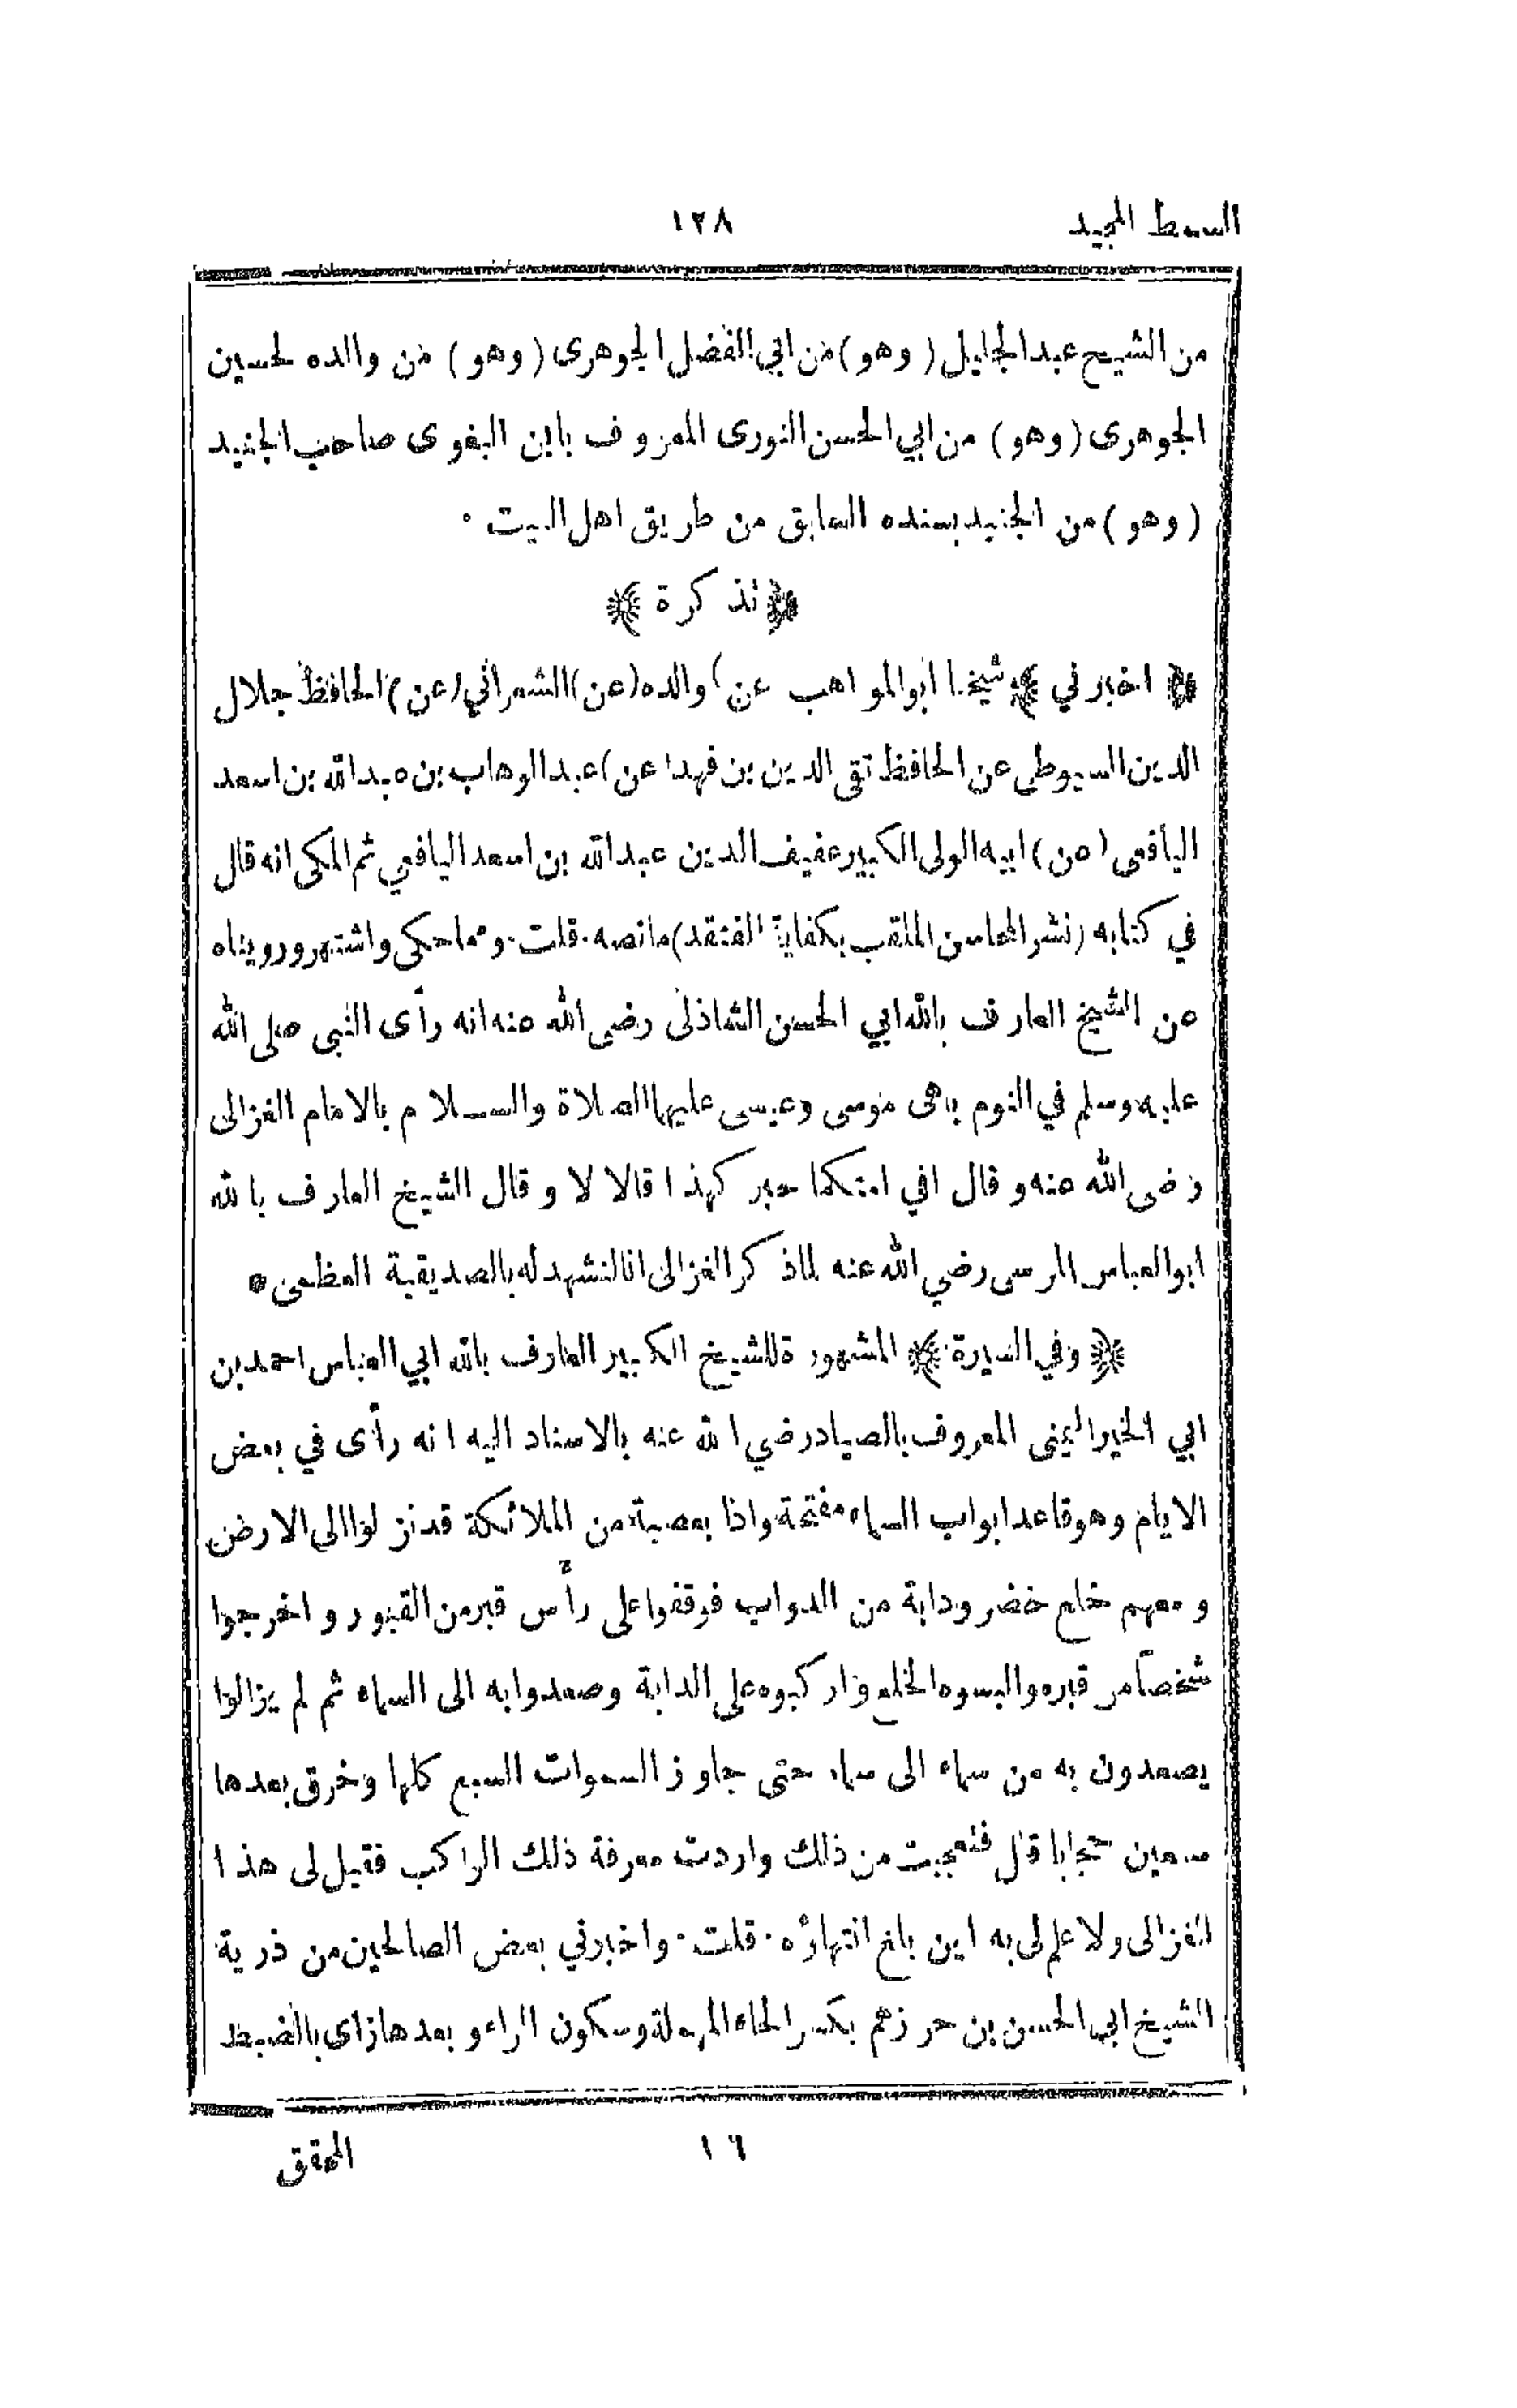 السمط المجيد
١٢٨
من الشيخ عبد الجليل ( وهو ) من ابي الفضل الجوهرى ( وهو ) من والده لحسين
الجوهرى ( وهو ) من ابي الحسن النورى المعروف بابن البغوى صاحب الجنيد
( وهو ) من الجنيد بسنده السابق من طريق اهل البيت ٠
﴿ تذكرة ﴾
﴿ اخبرني ﴾ شيخنا ابو المواهب عن ) والده ( عن ) الشعراني ( عن ) الحافظ جلال
الدين السيوطى عن الحافظ تقى الدين بن فهد ( عن ) عبد الوهاب بن عبد الله بن اسعد
اليافعى ( عن ) ابيه الولى الكبير عفيف الدين عبد الله بن اسعد اليافعي ثم المكى انه قال
في كتابه ( نشر المحاسن الملقب بكفاية المعتقد ) مانصه ٠ قلت ٠ ومما حكى واشتهر ورويناه
عن الشيخ العارف بالله ابي الحسن الشاذلى رضى الله عنه انه رأى النبى صلى الله
عليه وسلم في النوم باهى موسى وعيسى عليهما الصلاة والسلام بالامام الغزالى
رضى الله عنه وقال افي امتكما حبر كهذا قالا لا وقال الشيخ العارف بالله
ابو العباس المرسى رضي الله عنه لما ذكر الغزالى انا لنشهد له بالصديقية العظمى ٠
﴿ وفي السيرة ﴾ المشهورة للشيخ الكبير العارف بالله ابي العباس احمد بن
ابي الخير اليمنى المعروف بالصياد رضي الله عنه بالاسناد اليه انه رأى في بعض
الايام وهو قاعد ابواب السماء مفتحة واذا بعصبة من الملائكة قد نزلوا الى الارض
ومعهم خلع خضر ودابة من الدواب فوقفوا على رأس قبر من القبور واخرجوا
شخصاً من قبره والبسوه الخلع واركبوه على الدابة وصعدوا به الى السماء ثم لم يزالوا
يصعدون به من سماء الى سماء حتى جاوز السموات السبع كلها وخرق بعدها
سبعين حجابا قال فتعجبت من ذلك واردت معرفة ذلك الراكب فقيل لى هذا
الغزالى ولا علم لى به اين بلغ انتهاؤه ٠ قلت ٠ واخبرني بعض الصالحين من ذرية
الشيخ ابي الحسن بن حرزهم بكسر الحاء المهملة وسكون الراء وبعدها زاى بالضبط
١٦
المحقق